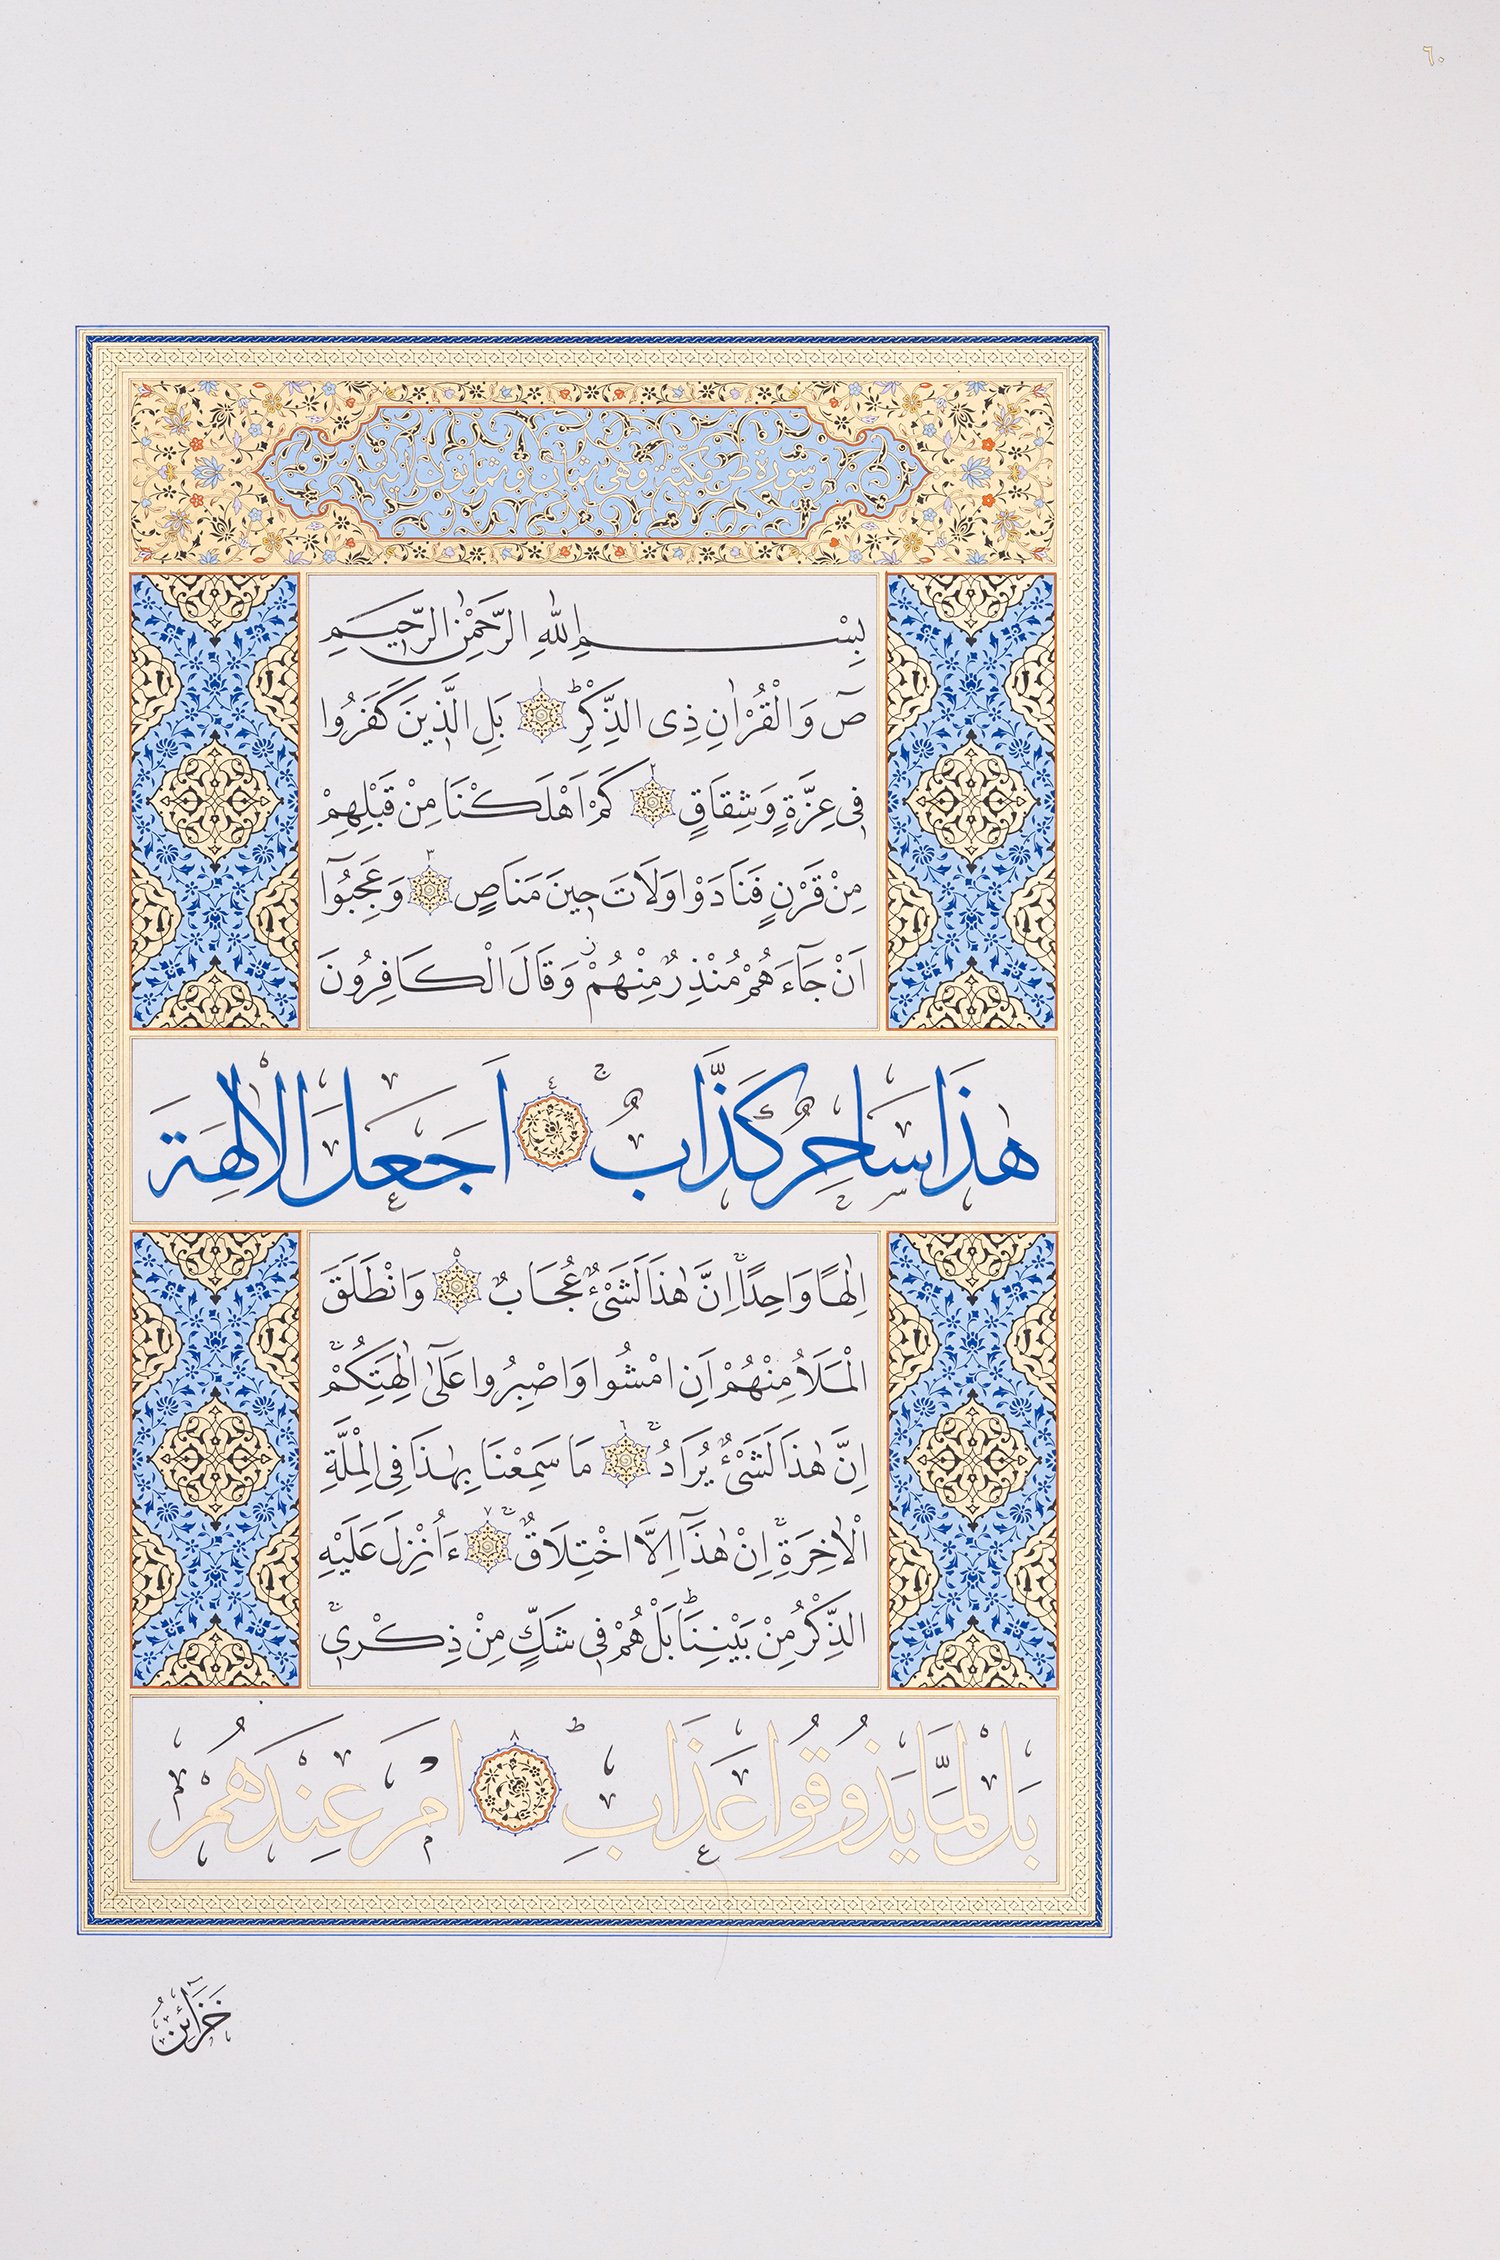 ٦٠
سورة ص مكية وهى ثمان وثمانون اية
بِسْمِ اللهِ الرَّحْمٰنِ الرَّحِيمِ
صٓ وَالْقُرْاٰنِ ذِى الذِّكْرِؕ ١ بَلِ الَّذِينَ كَفَرُوا
فِى عِزَّةٍ وَشِقَاقٍ ٢ كَمْ اَهْلَكْنَا مِنْ قَبْلِهِمْ
مِنْ قَرْنٍ فَنَادَوْا وَلَاتَ حِينَ مَنَاصٍ ٣ وَعَجِبُوٓا
اَنْ جَٓاءَهُمْ مُنْذِرٌ مِنْهُمْؗ وَقَالَ الْكَافِرُونَ
هٰذَا سَاحِرٌ كَذَّابٌۚ ٤ اَجَعَلَ الْاٰلِهَةَ
اِلٰهًا وَاحِدًاۚ اِنَّ هٰذَا لَشَىْءٌ عُجَابٌ ٥ وَانْطَلَقَ
الْمَلَاُ مِنْهُمْ اَنِ امْشُوا وَاصْبِرُوا عَلٰٓى اٰلِهَتِكُمْۚ
اِنَّ هٰذَا لَشَىْءٌ يُرَادُۚ ٦ مَا سَمِعْنَا بِهٰذَا فِى الْمِلَّةِ
الْاٰخِرَةِۚ اِنْ هٰذَٓا اِلَّا اخْتِلَاقٌۚ ٧ ءَاُنْزِلَ عَلَيْهِ
الذِّكْرُ مِنْ بَيْنِنَاؕ بَلْ هُمْ فِى شَكٍّ مِنْ ذِكْرِىۚ
بَلْ لَمَّا يَذُوقُوا عَذَابِؕ ٨ اَمْ عِنْدَهُمْ
خَزَٓائِنُ